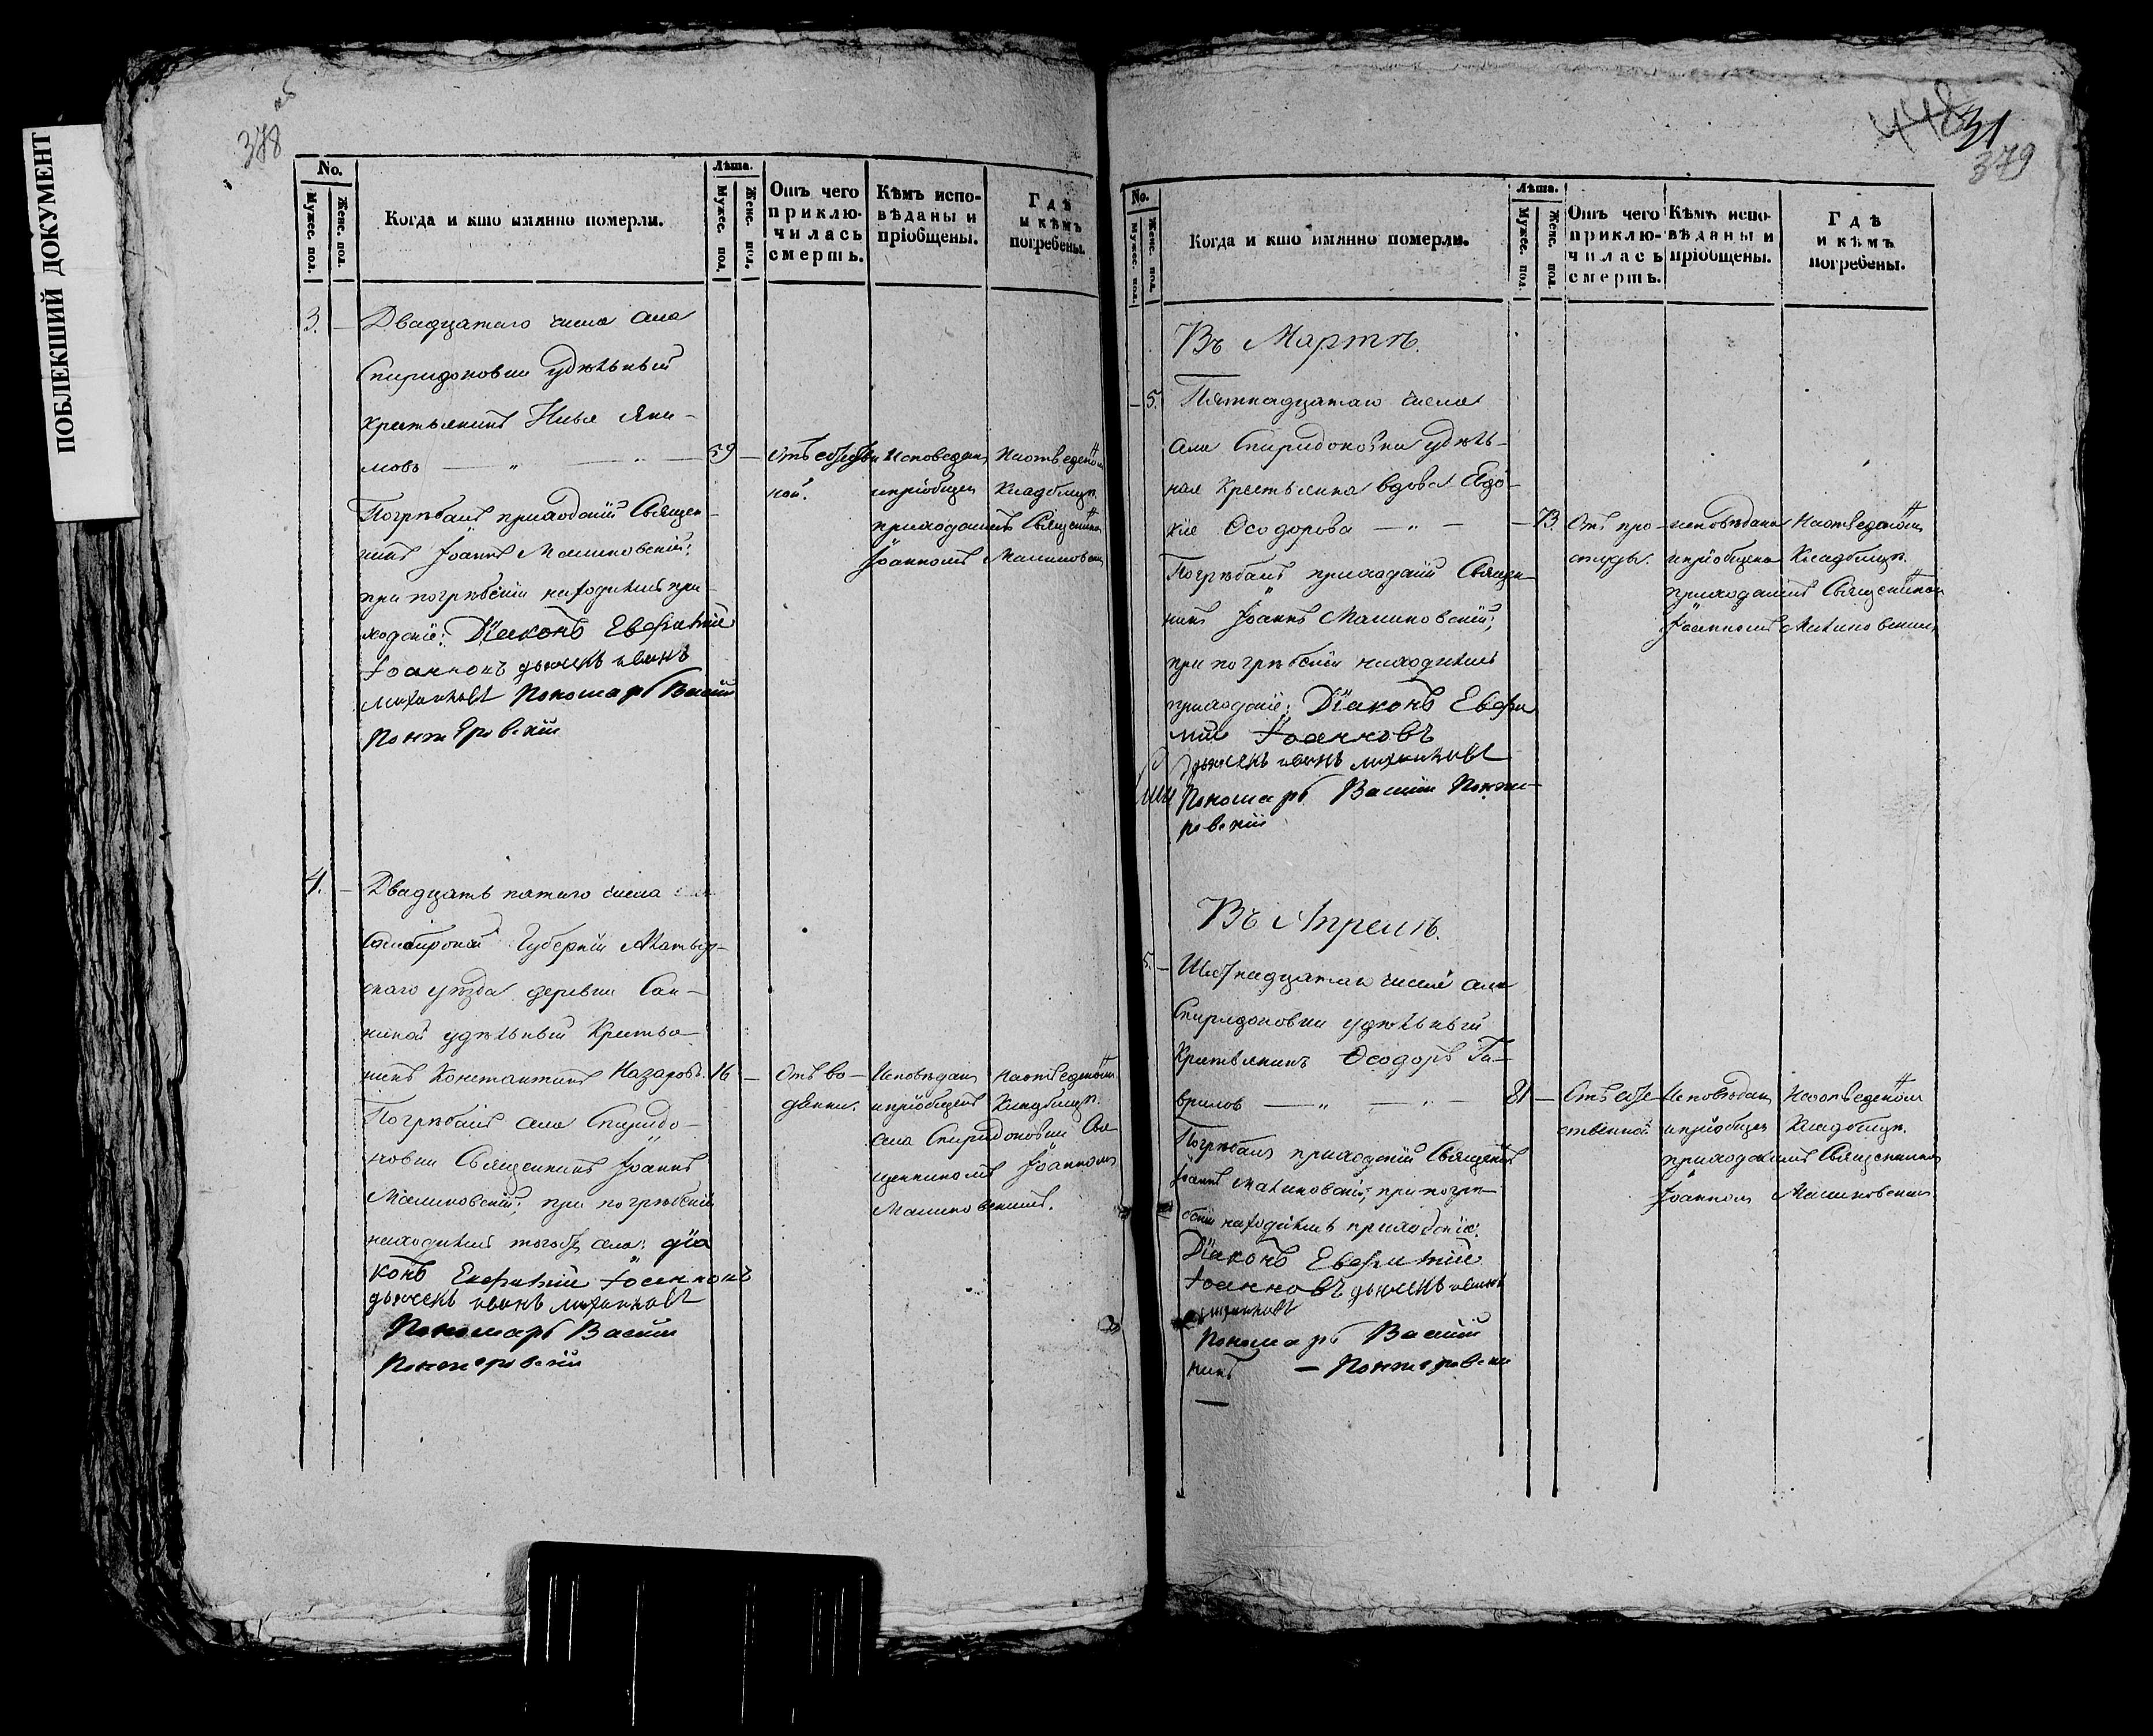 ПОБЛЕКШИЙ ДОКУМЕНТ
378 об
No.
Мужес. пол.
Женс. пол.
Когда и кто имянно померли.
Лѣта.
Мужес. пол.
Женс. пол.
Отъ чего
приклю-
чилась
смерть.
Кѣмъ испо-
вѣданы и
пріобщены.
Гдѣ
и кѣмъ
погребены.
3. — Двадцатаго числа села
Спиридоновки удѣльный
крестьянинъ Илья Яки-
мовъ — „ — „ — 59 —
Погрѣбалъ приходскій Священ-
никъ Іоаннъ Малиновскій;
при погрѣбеніи находились при-
ходскіе: Діаконъ Евфимій
Іоанновъ дьячекъ иванъ
михайловъ Пономарь Василій
исповѣдан
и пріобщен
приходскимъ Священникомъ
Іоанномъ Малиновскимъ
На отведеном
Кладбищѣ.
4. — Двадцать пятаго числа
Симбирской Губерніи Алатыр-
скаго уѣзда деревни
удѣльный Крестья-
нинъ Константинъ Назаровъ. 16 —
Погрѣбалъ села Спиридо-
новки Священникъ Іоаннъ
Малиновскій; при погрѣбеніи
находились тогожъ села: діа
конъ Евфимій Іоанновъ
дьячекъ иванъ михайловъ
Пономарь Василій
Отъ во-
дянки.
Исповѣдан
и пріобщенъ
села Спиридоновки Свя-
щенникомъ Іоанномъ
Малиновскимъ.
На отведеномъ
Кладбищѣ.
448
31
379
No.
Мужес. пол.
Женс. пол.
Когда и кто имянно померли.
Лѣта.
Мужес. пол.
Женс. пол.
Отъ чего
приклю-
чилась
смерть.
Кѣмъ испо-
вѣданы и
пріобщены.
Гдѣ
и кѣмъ
погребены.
Въ Мартѣ.
— 5. Пятнадцатаго числа
села Спиридоновки удѣль-
ная крестьянка вдова Евдо-
кія Ѳеодорова — „ — — 73.
Погрѣбалъ приходскій Священ-
никъ Іоаннъ Малиновскій;
при погрѣбеніи находились
приходскіе: Діаконъ Евфи
мій Іоанновъ
дьячекъ иванъ михайловъ
Пономарь Василій
Отъ про-
студы.
исповѣдана
и пріобщена
приходскимъ Священником
Іоанномъ Малиновским
На отведеном
Кладбищѣ.
Въ Апрелѣ.
5. — Шестнадцатаго числа села
Спиридоновки удѣльный
Крестьянинъ Ѳеодоръ Га-
врилов — „ — „ — 81 —
Погрѣбалъ приходскій Священникъ
Іоаннъ Малиновскій; при погрѣ-
беніи находились приходскіе:
Діаконъ Евфимій
Іоанновъ дьячекъ иванъ
михайловъ
Пономарь Василій
Исповѣдан
и пріобщен
приходскимъ Священником
Іоанном Малиновским
На отведеном
Кладбищѣ.